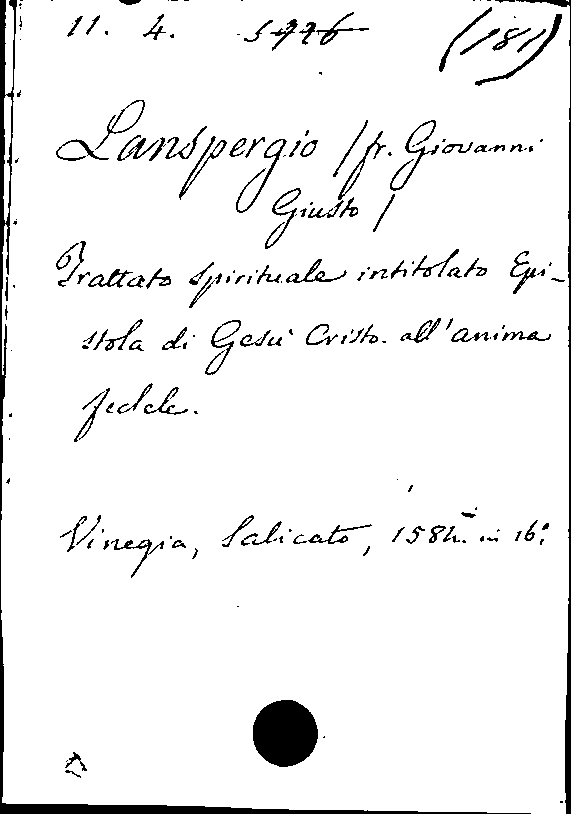 11. 4. 5996 (181)
Lanspergio / fr. Giovanni
Giusto /
Trattato spirituale intitolato Epi-
stola di Gesù Cristo. all'anima
fedele.
Vinegia, Salicato, 1584. in 16°.